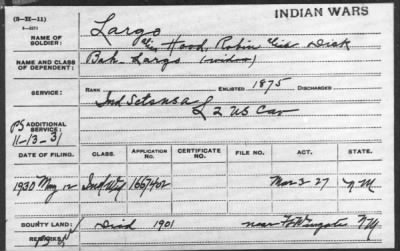 (3-II-11)
INDIAN WARS
Largo
NAME OF SOLDIER:
alias Hood, Robin alias Dick
NAME AND CLASS OF DEPENDENT:
Bah Largo (widow)
SERVICE:
RANK ENLISTED 1875 DISCHARGED
Ind Scts USA
L 2 US Cav
ADDITIONAL SERVICE:
11-13-31
DATE OF FILING. CLASS. APPLICATION NO. CERTIFICATE NO. FILE NO. ACT. STATE.
1930 May 12 Ind Wid 1667402 Mar 3 27 N M
BOUNTY LAND: Died 1901 near Ft Wingate N M
REMARKS: